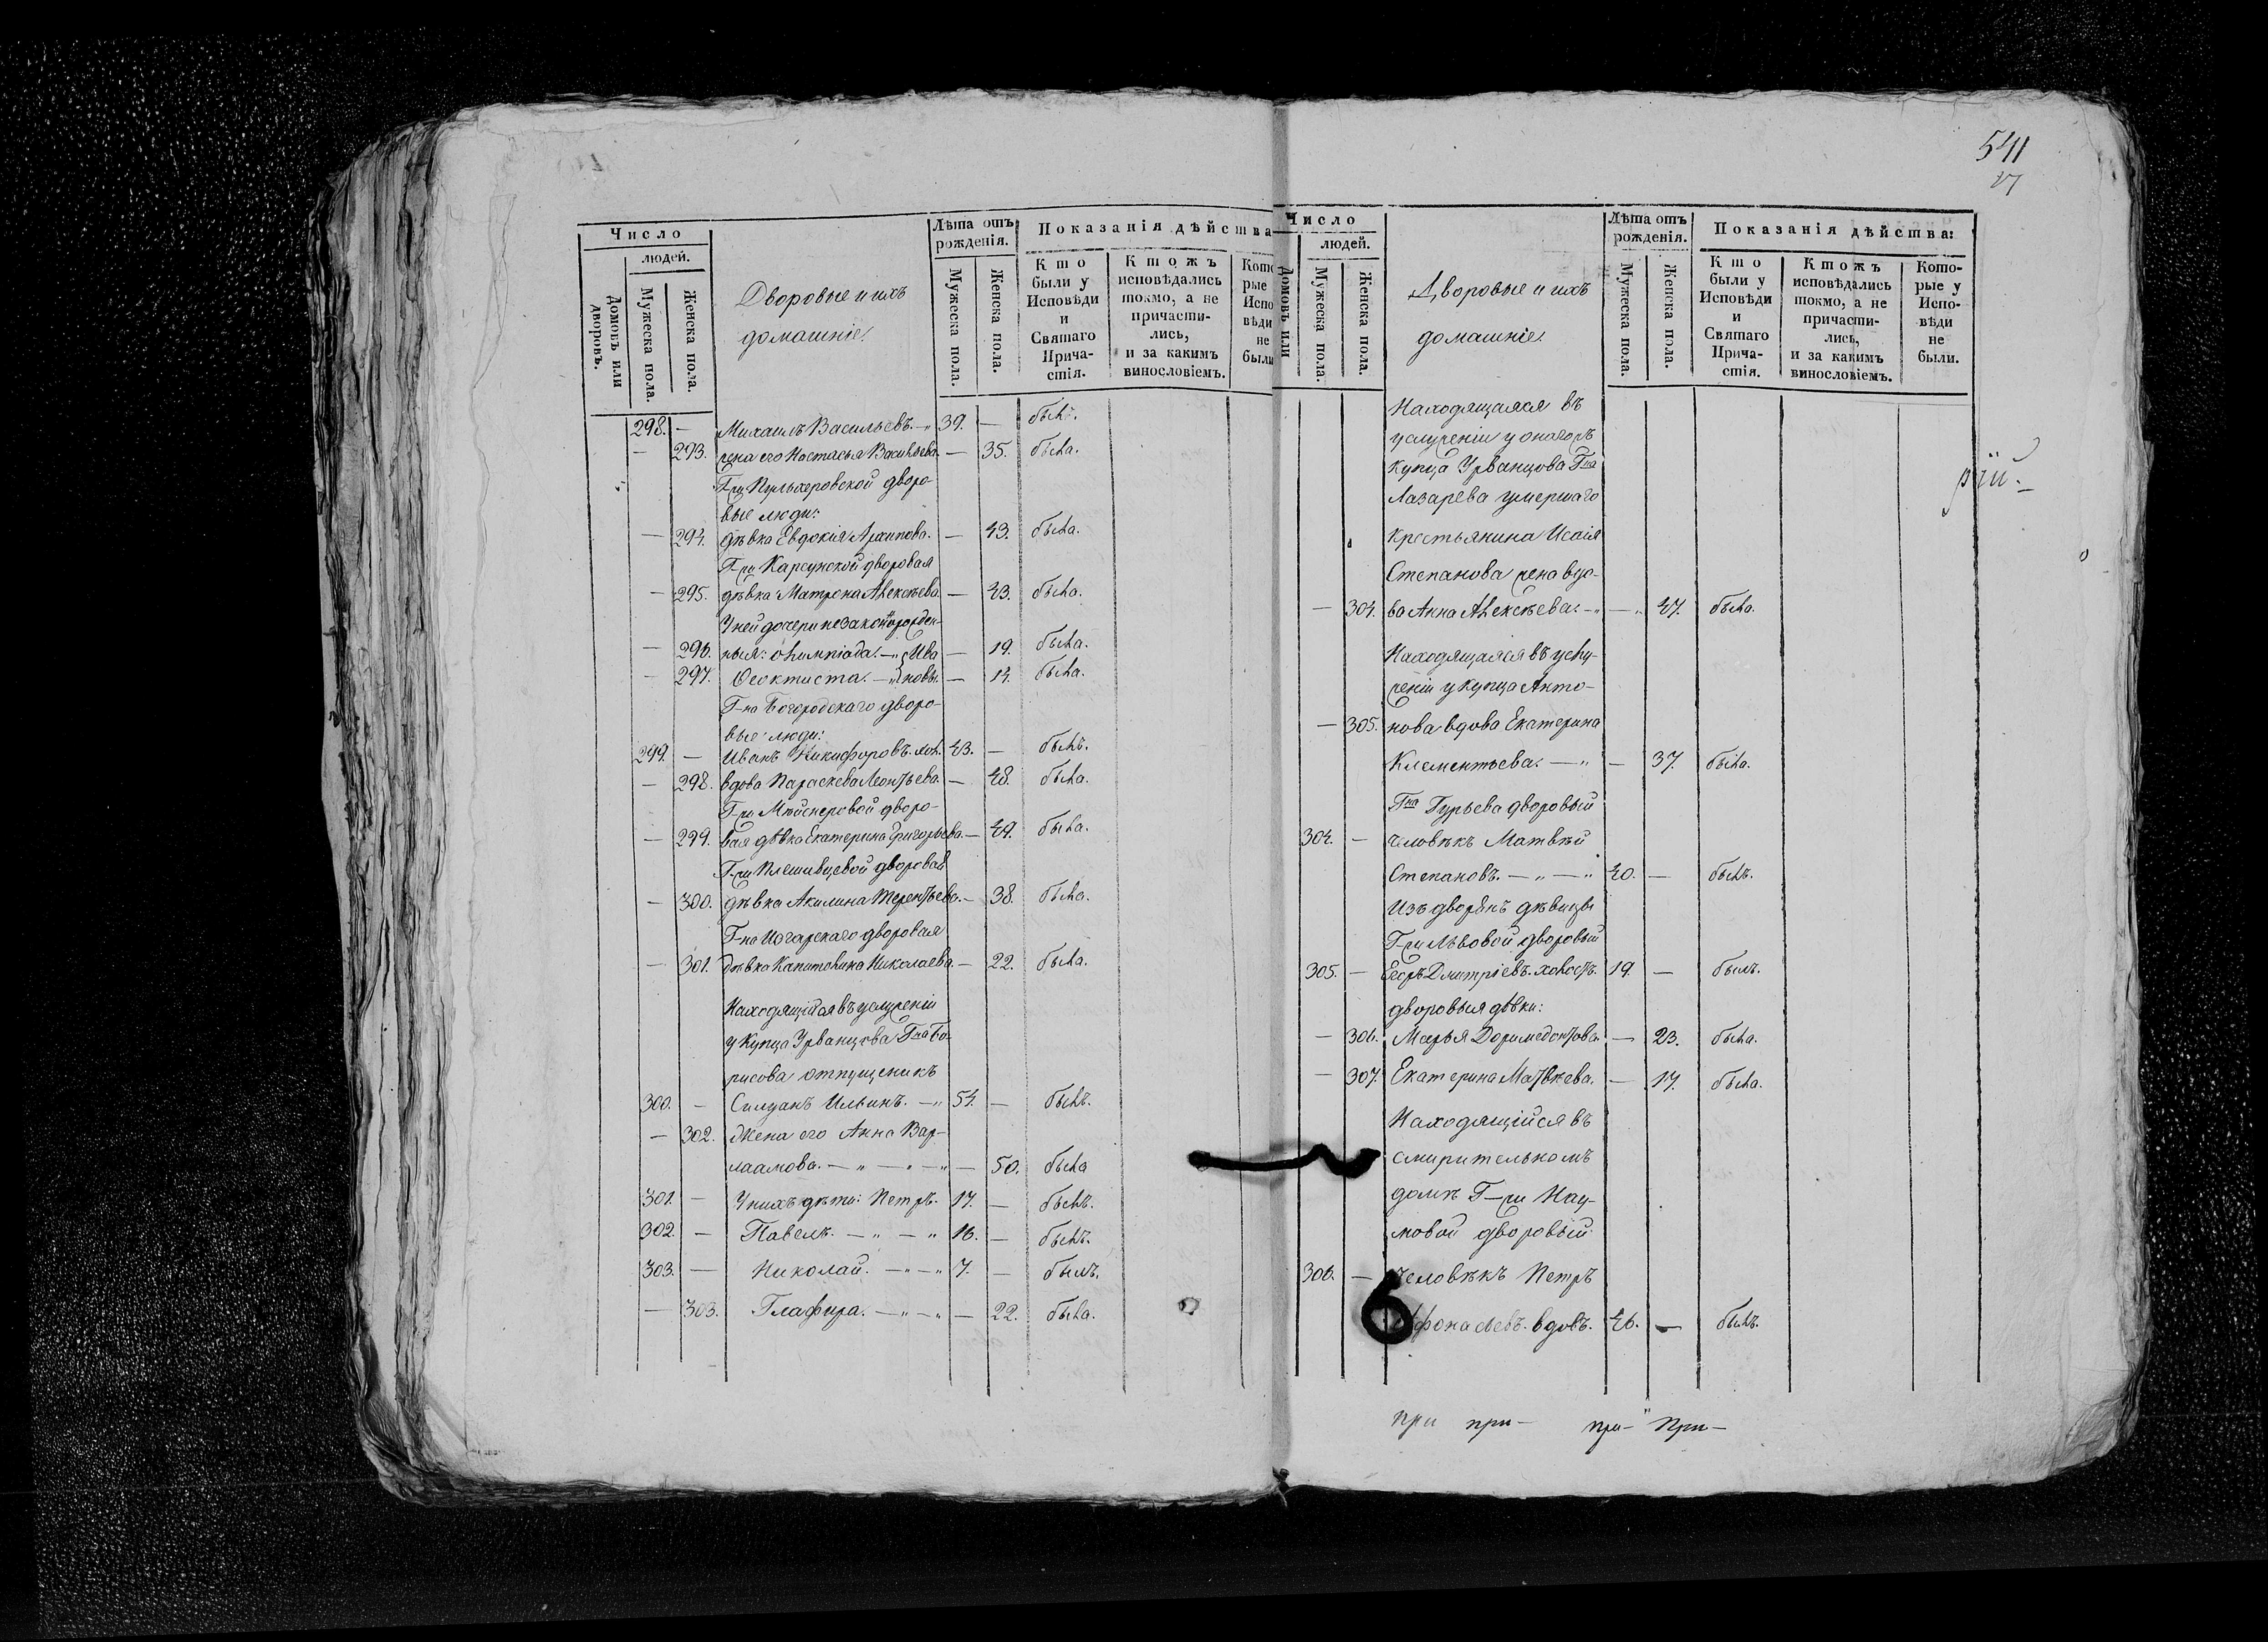 541
17
Число
людей.
Домовъ или дворовъ.
Мужеска пола.
Женска пола.
Дворовые и ихъ
домашніе.
Лѣта отъ рожденія.
Мужеска пола.
Женска пола.
Показанія дѣйства
Кто были у Исповѣди и Святаго Прича-стія.
Ктожъ исповѣдались токмо, а не причасти-лись, и за какимъ винословіемъ.
Кото рые Испо вѣди не были
298. — Михаилъ Васильевъ. — 39. — былъ.
— 293. жена его Настасья Васильева. — 35. была.
Г-жи Пульхеровской дворо-
вые люди:
— 294. дѣвка Евдокія Архипова. — 43. была.
Г-жи Карсунской дворовая
— 295. дѣвка Матрона Алексѣева. — 43. была.
У ней дочери незаконорожден-
— 296. ныя: Олимпіада. — Ива — 19. была.
— 297. Ѳеоктиста. — новы. — 14. была.
Г-на Богородскаго дворо-
вые люди:
299. — Иванъ Никифоровъ. хол. 43. — былъ.
— 298. вдова Параскева Леонтьева. — 48. была.
Г-жи Мейснеровой дворо-
— 299. вая дѣвка Екатерина Григорьева. — 49. была.
Г-жи Плешивцевой дворовая
— 300. дѣвка Акилина Терентьева. — 38. была.
Г-на дворовая
— 301. дѣвка Капитолина Николаева. — 22. была.
Находящійся въ услуженіи
у купца Урванцова Гна Бо-
рисова отпущеникъ
300. — Силуанъ Ильинъ. — 54. — былъ.
— 302. Жена его Анна Вар-
лаамова. — „ — „ — „ — 50. была
301. — У нихъ дѣти: Петръ. 17. — былъ.
302. — Павелъ. — „ — „ 16. — былъ.
303. — Николай. — „ — „ 7. — былъ.
— 303. Глафира. — „ — „ — 22. была.
Число
людей.
Домовъ или
Мужеска пола.
Женска пола.
Дворовые и ихъ
домашніе.
Лѣта отъ рожденія.
Мужеска пола.
Женска пола.
Показанія дѣйства:
Кто были у Исповѣди и Святаго Прича-стія.
Ктожъ исповѣдались токмо, а не причасти-лись, и за какимъ винословіемъ.
Кото-рые у Испо-вѣди не были.
Находящаяся въ
услуженіи у онагожъ
купца Урванцова Гна
Лазарева умершаго
крестьянина Исаія
Степанова жена вдо-
— 304. ва Анна Алексѣева. — „ — „ 47. была.
Находящаяся въ услу-
женіи у купца Анто-
— 305. нова вдова Екатерина
Клементьева. — „ — 37. была.
Гна Гурьева дворовый
304. — человѣкъ Матвѣй
Степановъ. — „ — „ 40. — былъ.
Изъ дворянъ дѣвицы
Г-жи Львовой дворовый
305. — Егоръ Дмитріевъ. холостъ. 19. — былъ.
дворовыя дѣвки:
— 306. Марья Доримедонтова. — 23. была.
— 307. Екатерина Матвѣева. — 17. была.
Находящійся въ
смирительномъ
домѣ Г-жи Нау-
мовой дворовый
306. — человѣкъ Петръ
Афонасьевъ. вдовъ. 46. — былъ.
рій.
при при- при- При-